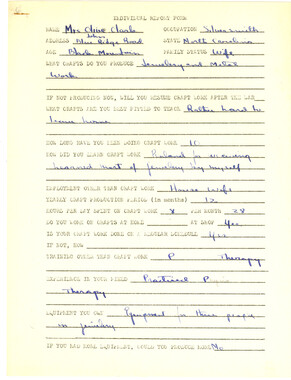 INDIVIDUAL REPORT FORM
NAME Mrs Clive Clark OCCUPATION Silversmith
ADDRESS Blue Ridge Road STATE North Carolina
AGE Black Mountain FAMILY STATUS Wife
WHAT CRAFTS DO YOU PRODUCE Jewelry and Metal
Work
IF NOT PRODUCING NOW, WILL YOU RESUME CRAFT WORK AFTER THE WAR
WHAT CRAFTS ARE YOU BEST FITTED TO TEACH Rather hard to
leave home
HOW LONG HAVE YOU BEEN DOING CRAFT WORK 10
HOW DID YOU LEARN CRAFT WORK for weaving
learned most of jewelry by myself
EMPLOYMENT OTHER THAN CRAFT WORK House Wife
YEARLY CRAFT PRODUCTION PERIOD (in months) 12
HOURS PER DAY SPENT ON CRAFT WORK X PER MONTH 28
DO YOU WORK ON CRAFTS AT HOME AT SHOP Yes
IS YOUR CRAFT WORK DONE ON A REGULAR SCHEDULE Yes
IF NOT, HOW
TRAINING OTHER THAN CRAFT WORK P Therapy
EXPERIENCE IN YOUR FIELD Practiced P
Therapy
EQUIPMENT YOU OWN Equipment for three people
in jewelry
IF YOU HAD MORE EQUIPMENT, COULD YOU PRODUCE MORE No